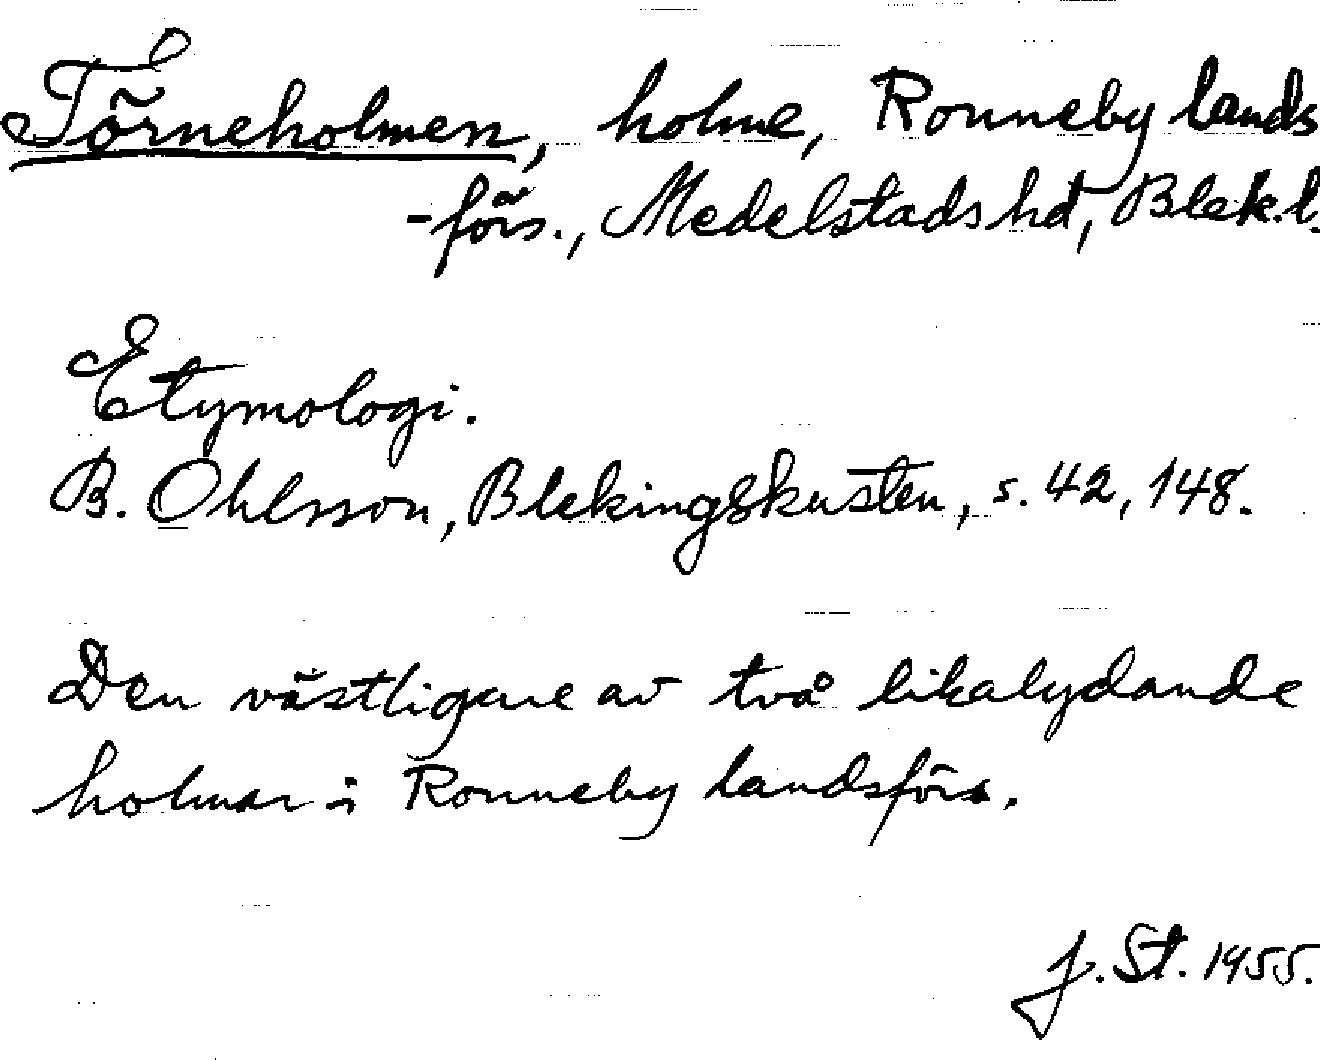 Törneholmen, holme, Ronneby lands
-förs., Medelstads hd, Blek. l.
Etymologi.
B. Ohlsson, Blekingskusten, s. 42, 148.
Den västligare av två likalydande
holmar i Ronneby landsförs.
J. St. 1955.